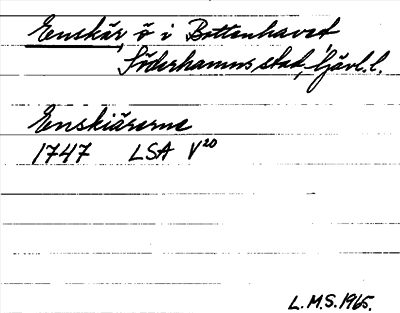 Enskär, ö i Bottenhavet,
Söderhamns stad, Gävl. l.
Enskiärarne
1747 LSA V20
L.M.S. 1965.